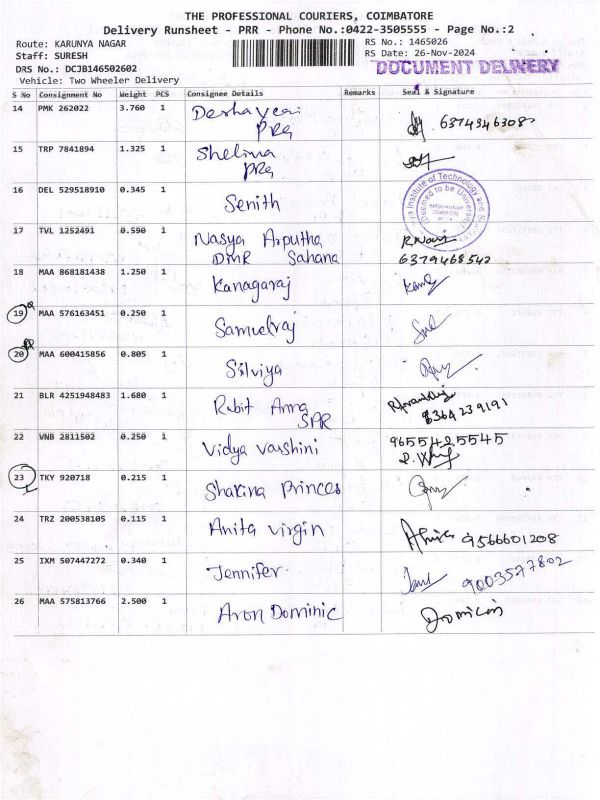 THE PROFESSIONAL COURIERS, COIMBATORE
Delivery Runsheet - PRR - Phone No.:0422-3505555 - Page No.:2
Route: KARUNYA NAGAR RS No.: 1465026
Staff: SURESH RS Date: 26-Nov-2024
DRS No.: DCJB146502602 DOCUMENT DELIVERY
Vehicle: Two Wheeler Delivery
S No Consignment No Weight PCS Consignee Details Remarks Seal & Signature
14 PMK 262022 3.760 1
PRG 6374346308
15 TRP 7841894 1.325 1 Shelina
PRG
16 DEL 529518910 0.345 1 Senith
Institute of Technology and
Deemed to be University
17 TVL 1252491 0.590 1 Nasya Arputha
DMR Sahana 6379468542
18 MAA 868181438 1.250 1 Kanagaraj
19 MAA 576163451 0.250 1 Samuelraj
20 MAA 600415856 0.805 1 Silviya
21 BLR 4251948483 1.680 1 Rubit Anna
SPR 8364239191
22 VNB 2811502 0.250 1 Vidya varshini 9655425545
23 TKY 920718 0.215 1 Sharina Princes
24 TRZ 200538105 0.115 1 Anita virgin 9566601208
25 IXM 507447272 0.340 1 Jennifer. 9003577802
26 MAA 575813766 2.500 1 Aron Dominic